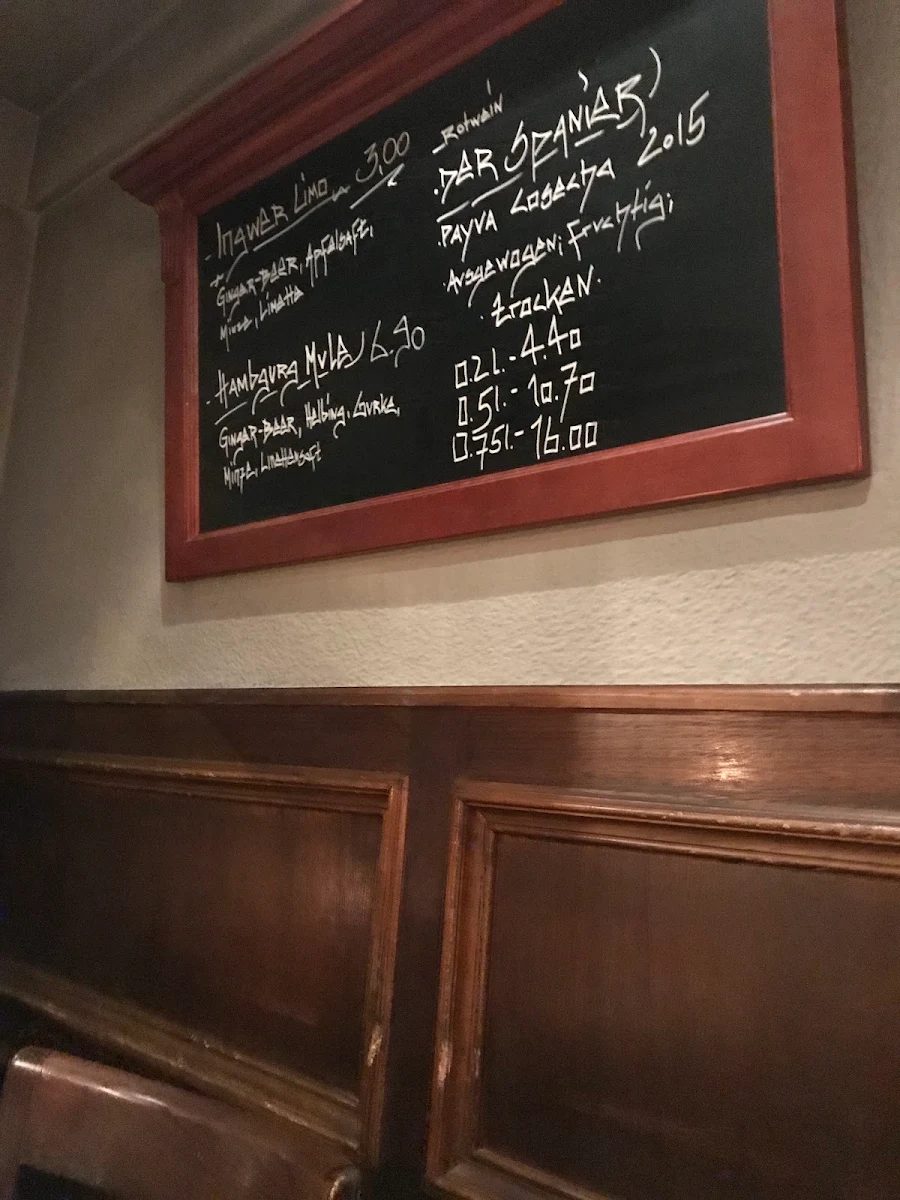 Ingwer Limo 3,00
Ginger-Beer, Apfelsaft,
Minze, Limette
Hamburg Mule 6.90
Ginger-Beer, Helbing, Gurke,
Minze, Limettensaft
Rotwein
Der Spanier
Payva Cosecha 2015
Ausgewogen; fruchtig;
trocken
0.2l.- 4.40
0.5l.- 10.70
0.75l.- 16.00